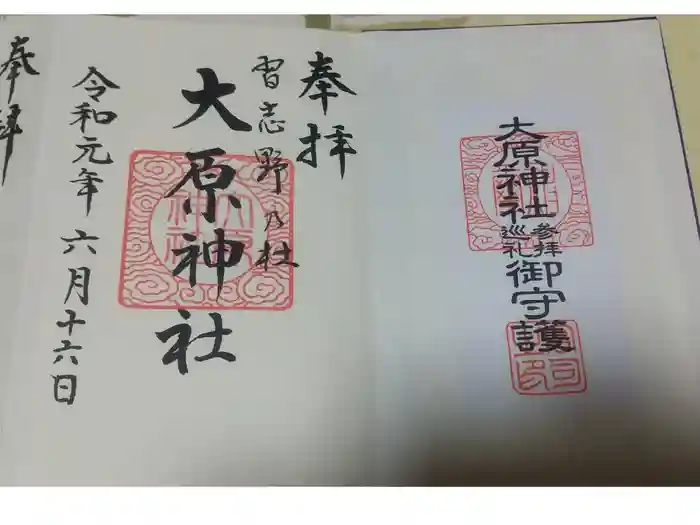 奉拝
習志野乃杜
大原神社
令和元年六月十六日
奉拝
大原神社
参拝
巡礼
御守護